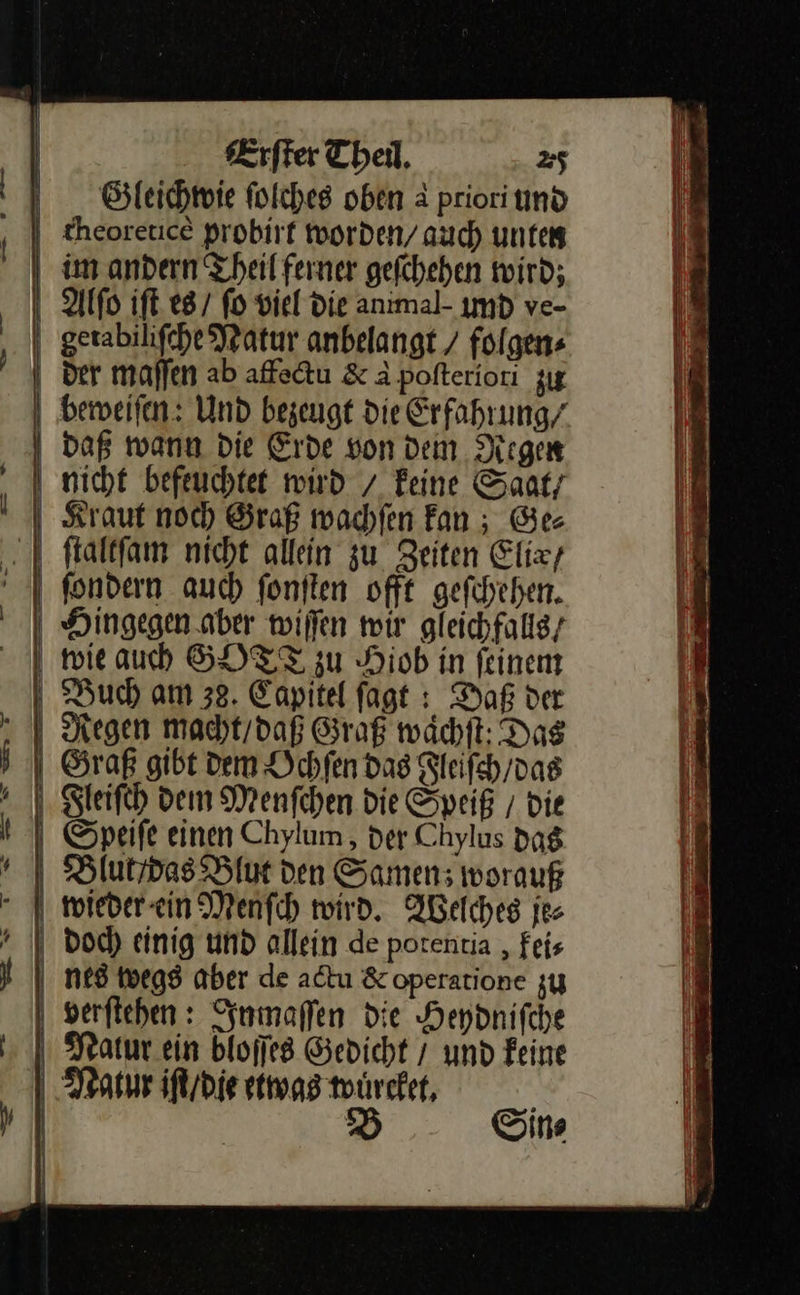 Erſter Theil. 25
Gleichwie ſolches oben à priori und
theoreticè probirt worden/ auch unten
im andern Theil ferner geſchehen wird;
Alſo iſt es / ſo viel die animal- und ve-
getabiliſche Natur anbelangt / folgen⸗
der maſſen ab affectu & à poſteriori zu
beweiſen: Und bezeugt die Erfahrung/
daß wann die Erde von dem Regen
nicht befeuchtet wird / keine Saat/
Kraut noch Graß wachſen kan; Ge⸗
ſtaltſam nicht allein zu Zeiten Eliæ/
ſondern auch ſonſten offt geſchehen.
Hingegen aber wiſſen wir gleichfalls/
wie auch GOTT zu Hiob in ſeinem
Buch am 38. Capitel ſagt: Daß der
Regen macht/daß Graß waͤchſt: Das
Graß gibt dem Ochſen das Fleiſch/das
Fleiſch dem Menſchen die Speiß / die
Speiſe einen Chylum, der Chylus das
Blut/das Blut den Samen; worauß
wieder ein Menſch wird. Welches je⸗
doch einig und allein de potentia, kei⸗
nes wegs aber de actu & operatione zu
verſtehen: Inmaſſen die Heydniſche
Natur ein bloſſes Gedicht / und keine
Natur iſt/die etwas wuͤrcket.
B Sin⸗